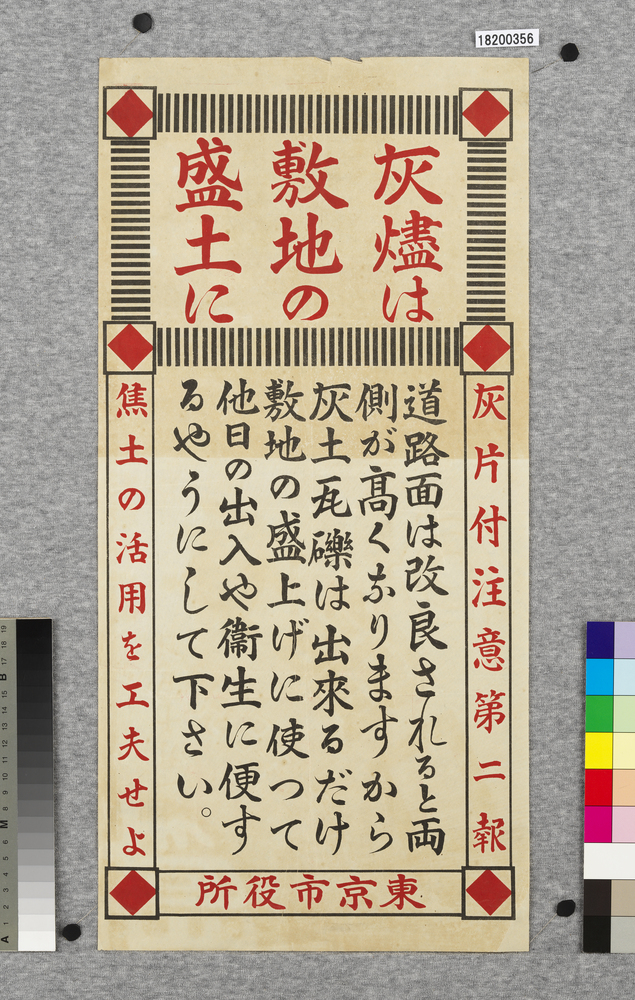 18200356
灰燼は
敷地の
盛土に
灰片付注意第二報
道路面は改良されると両
側が高くなりますから
灰土瓦礫は出來るだけ
敷地の盛上げに使つて
他日の出入や衞生に便す
るやうにして下さい。
焦土の活用を工夫せよ
東京市役所